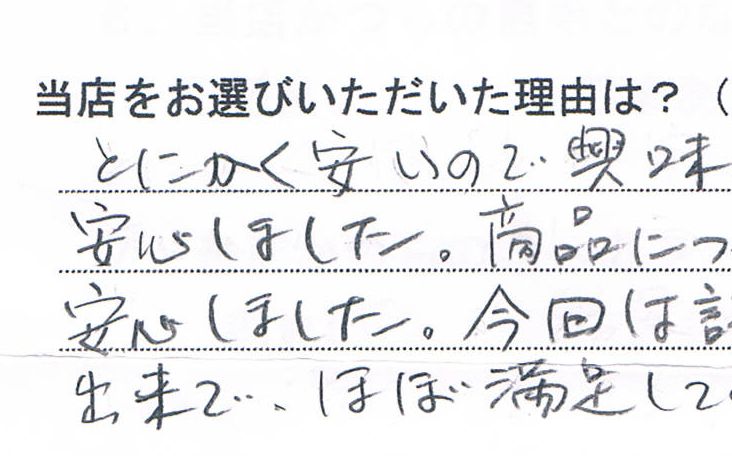 当店をお選びいただいた理由は？（
とにかく安いので興味
安心しました。商品につ
安心しました。今回は
出来で、ほぼ満足して